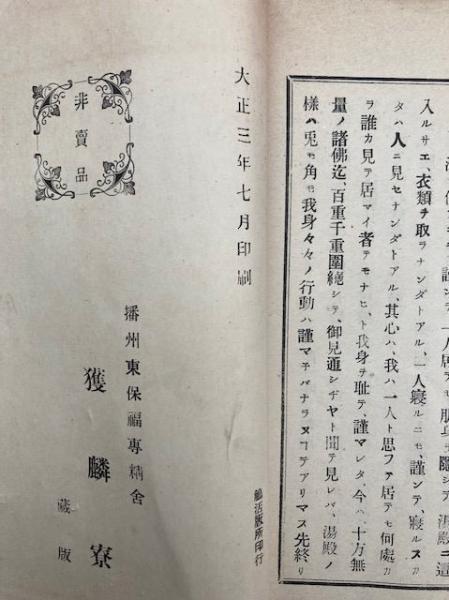 入ルサエ、衣類ヲ取ラナンダトアル、一人寢ルニモ、謹ンデ、寢ルスガ
タハ人ニ見セナンダトアル、其心ハ、我ハ一人ト思フテ居テモ何處カ
ヲ誰カ見テ居マイ者デモナヒ、ト我身ヲ耻テ、謹マレタ、今ハ十方無
量ノ諸佛迄、百重千重圍繞シテ、御見通シヂヤト聞テ見レバ、湯殿ノ
樣ハ兎モ角モ我身々々ノ行動ハ謹マネバナラヌコデアリマス先終リ
大正三年七月印刷
非賣品
播州東保福專精舍
獲麟寮
藏版
活版所印行